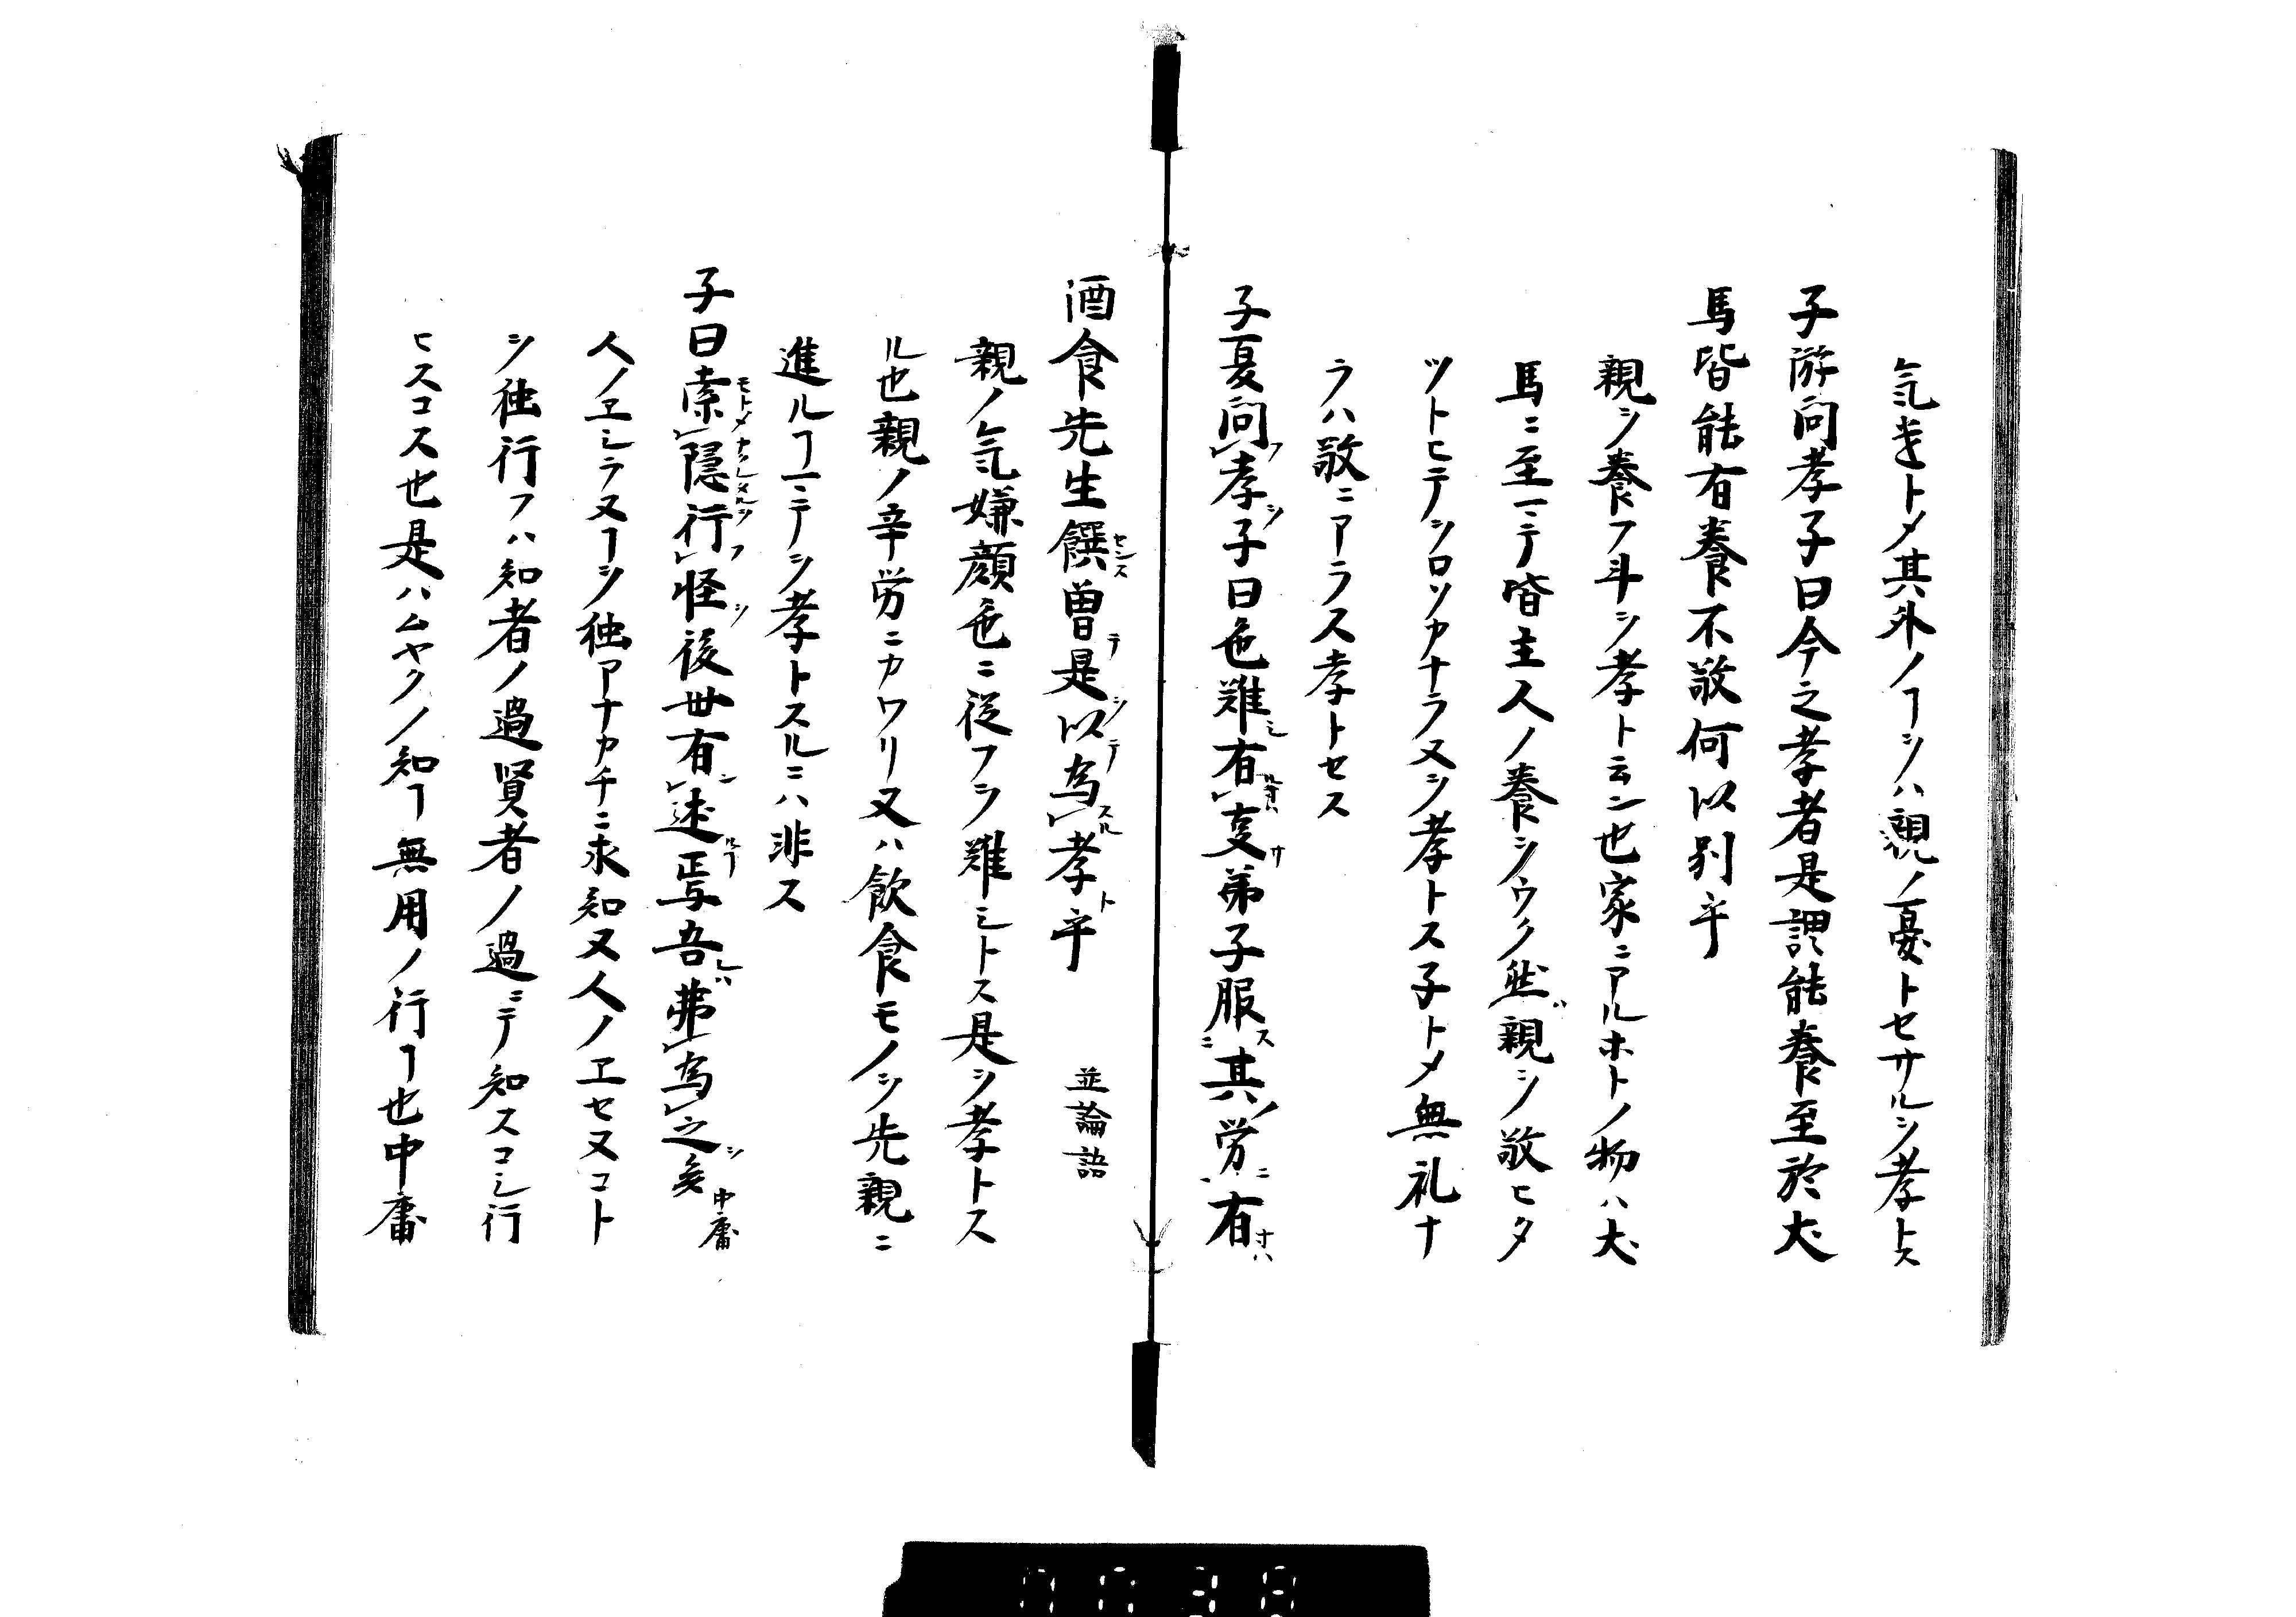 気遣トメ其外ノヿシハ親ノ憂トセサルシ孝トス
子游問孝子曰今之孝者是謂能養至於犬
馬皆能有養不敬何以別乎
親シ養フ斗シ孝ト云ン也家ニアルホトノ物ハ犬
馬ニ至ニテ皆主人ノ養シウク然ドモ親シノ敬ヒタ
ツトヒテシロソカナラヌシ孝トス子トメ無礼ナ
ラハ敬ニアラス孝トセス
子夏問孝子曰色難有事弟子服其労有
酒食先生饌曽是以為孝乎 並論語
親ノ気嫌顔色ニ従フシ難シトス是シ孝トス
ル也親ノ辛労ニカワリ又ハ飲食モノシ先親ニ
進ルヿニテシ孝トスルニハ非ス
子曰索隠行怪後世有述焉吾弗為之矣 中庸
人ノヱシラヌヿシ独アナカチニ求知又人ノエセヌコト
シ独行フハ知者ノ過賢者ノ過ニテ知スコシ行
ヒスコス也是ハムヤクノ知ヿ無用ノ行ヿ也中庸